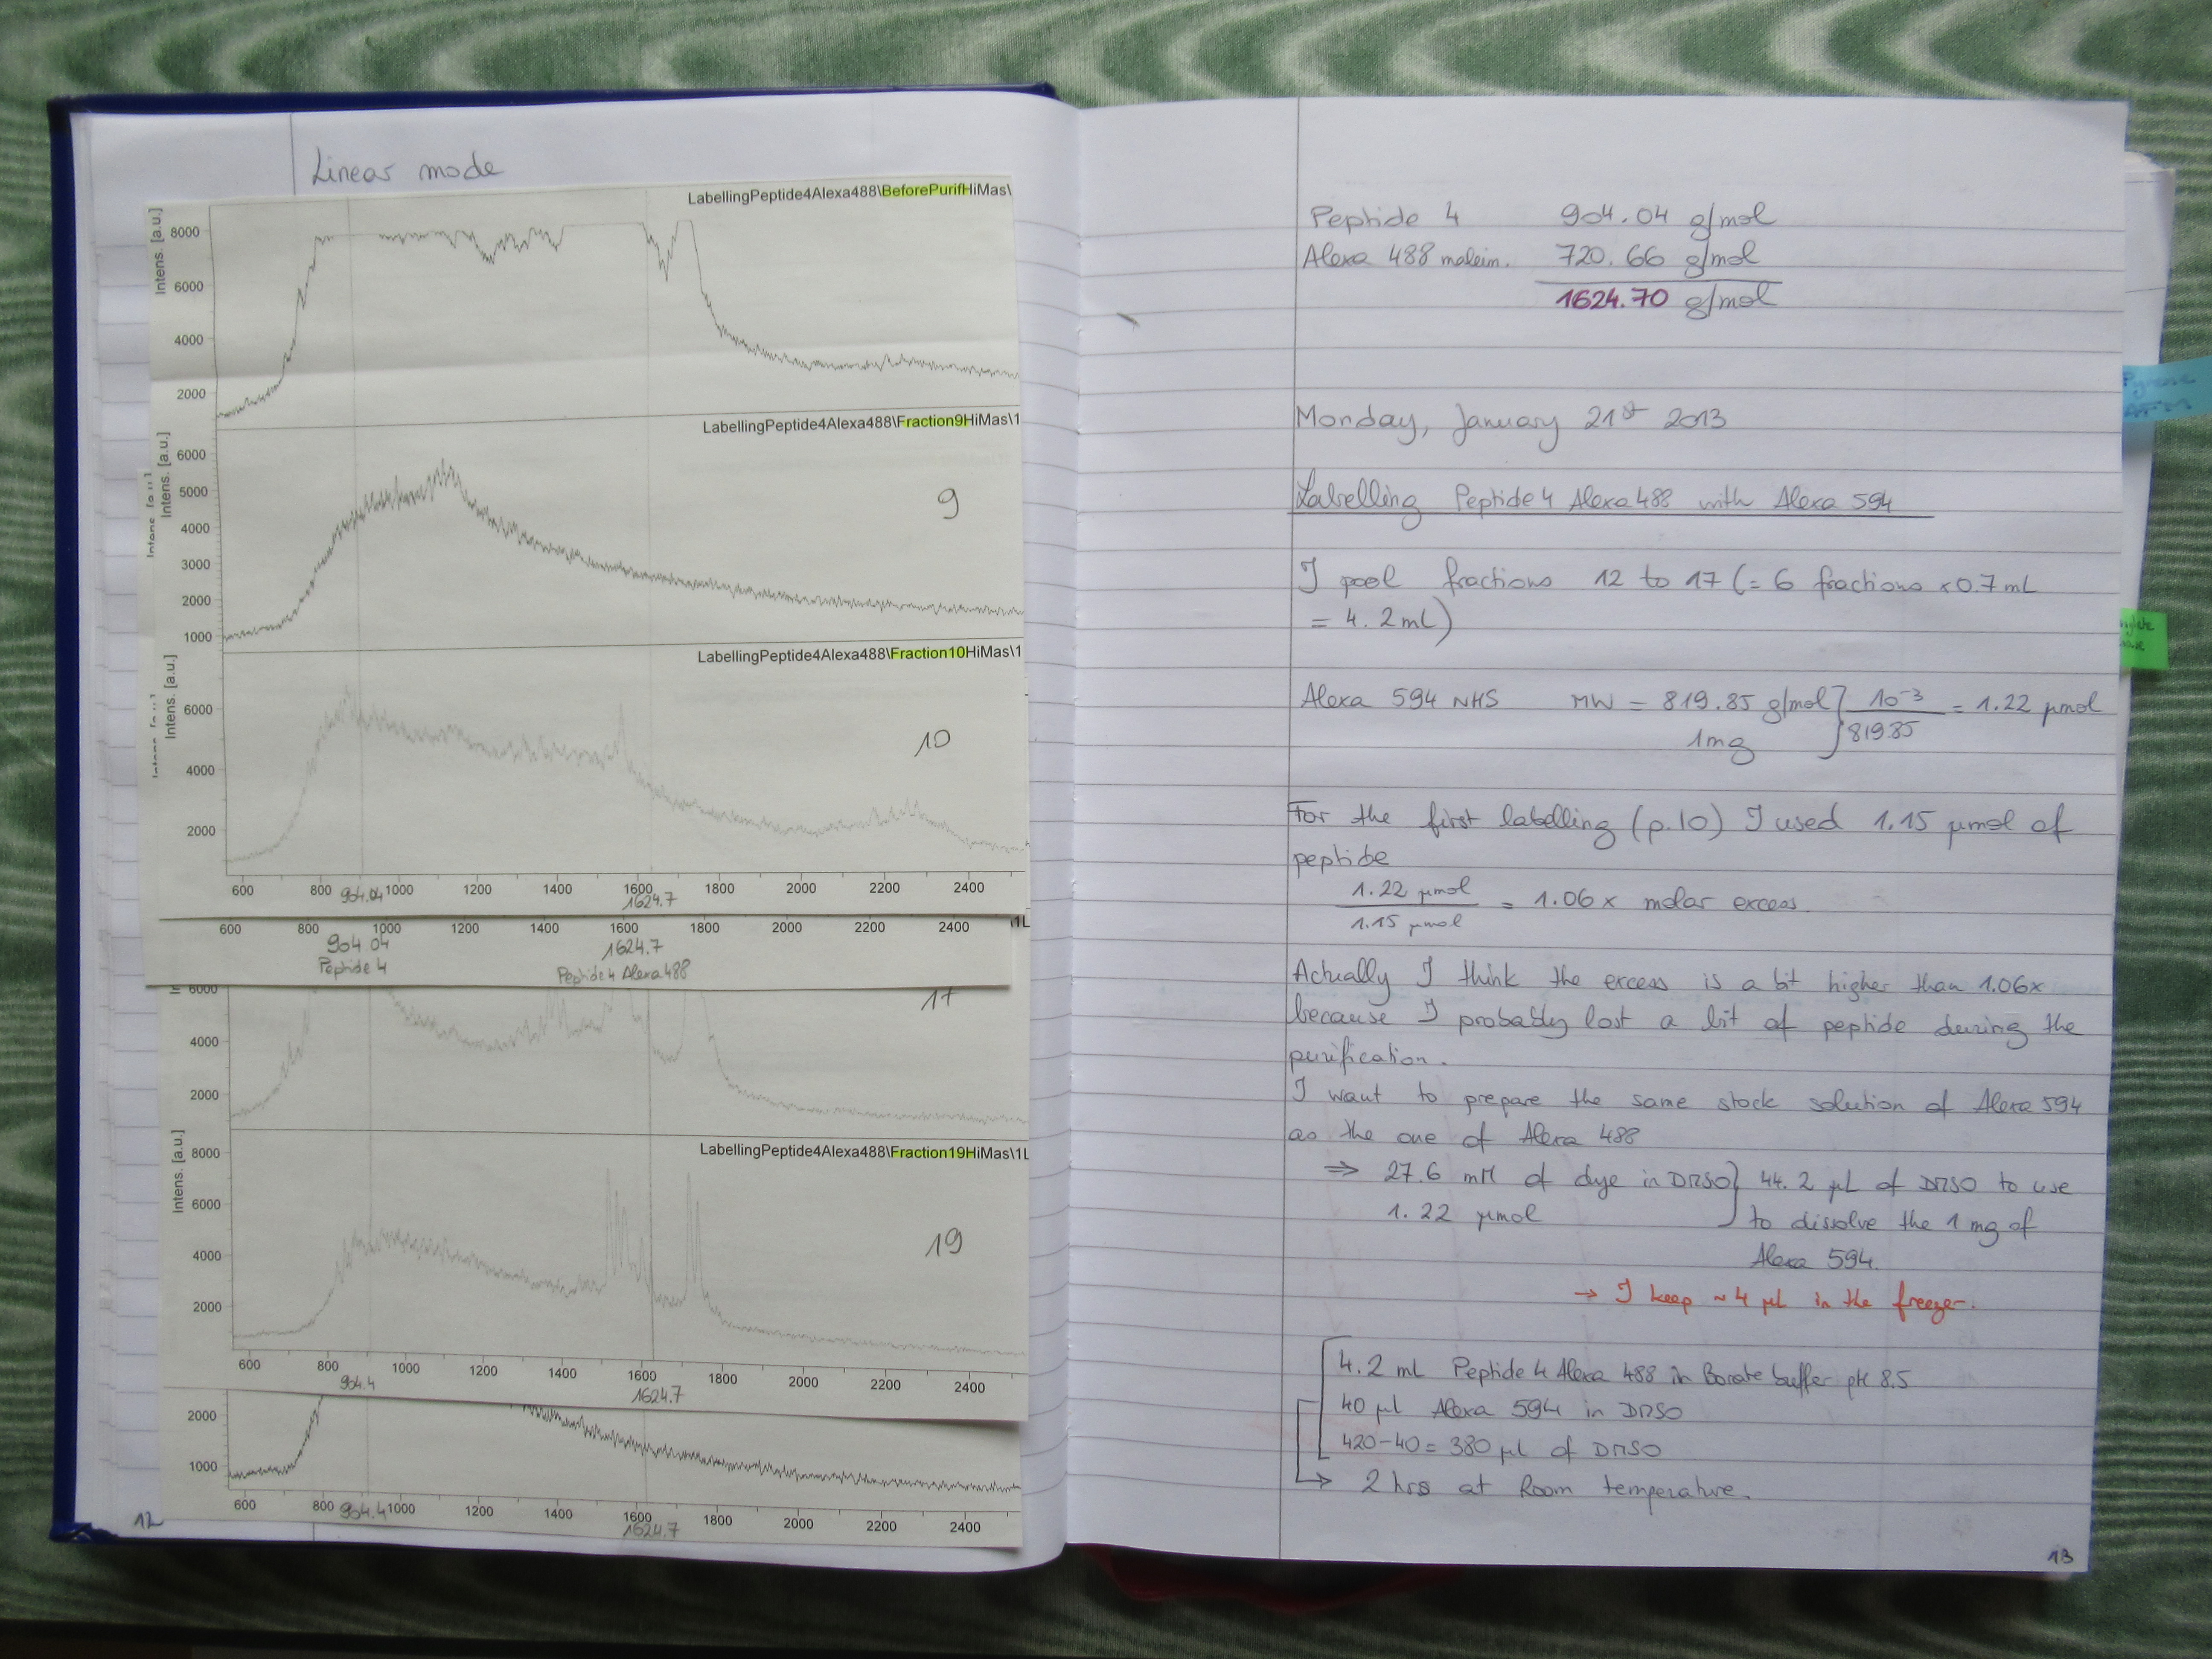 Linear mode
LabellingPeptide4Alexa488\BeforePurifHiMas\
Intens. [a.u.]
8000
6000
4000
2000
LabellingPeptide4Alexa488\Fraction9HiMas\1
Intens. [a.u.]
6000
5000
4000
3000
2000
1000
9
LabellingPeptide4Alexa488\Fraction10HiMas\1
Intens. [a.u.]
6000
4000
2000
10
600 800 1000 1200 1400 1600 1800 2000 2200 2400
904.04 1624.7
600 800 1000 1200 1400 1600 1800 2000 2200 2400
904.04 1624.7
Peptide 4 Peptide 4 Alexa 488
6000
4000
2000
17
LabellingPeptide4Alexa488\Fraction19HiMas\1L
Intens. [a.u.]
8000
6000
4000
2000
19
600 800 1000 1200 1400 1600 1800 2000 2200 2400
904.4 1624.7
2000
1000
600 800 1000 1200 1400 1600 1800 2000 2200 2400
904.4 1624.7
12
Peptide 4 904.04 g/mol
Alexa 488 maleim. 720.66 g/mol
1624.70 g/mol
Monday, January 21st 2013
Labelling Peptide 4 Alexa 488 with Alexa 594
I pool fractions 12 to 17 (= 6 fractions x 0.7 mL
= 4.2 mL)
Alexa 594 NHS MW = 819.85 g/mol } 10⁻³ / 819.85 = 1.22 µmol
1 mg
For the first labelling (p.10) I used 1.15 µmol of
peptide
1.22 µmol / 1.15 µmol = 1.06 x molar excess.
Actually I think the excess is a bit higher than 1.06x
because I probably lost a bit of peptide during the
purification.
I want to prepare the same stock solution of Alexa 594
as the one of Alexa 488
⇒ 27.6 mM of dye in DMSO } 44.2 µL of DMSO to use
1.22 µmol to dissolve the 1 mg of
Alexa 594.
→ I keep ~ 4 µL in the freezer.
4.2 mL Peptide 4 Alexa 488 in Borate buffer pH 8.5
40 µl Alexa 594 in DMSO
420-40 = 380 µl of DMSO
→ 2 hrs at Room temperature.
13